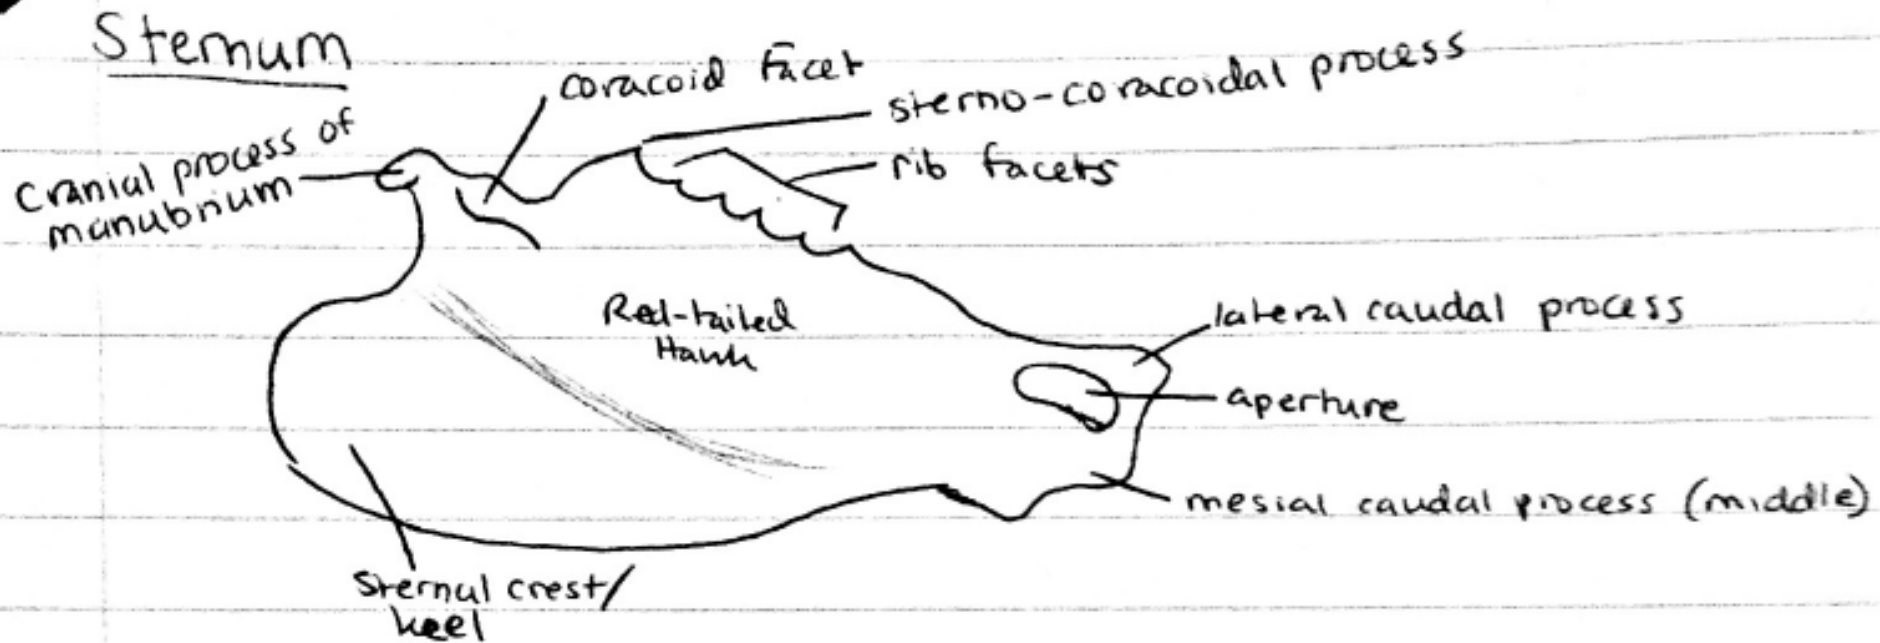 Sternum
coracoid facet
sterno-coracoidal process
rib facets
Cranial process of
manubrium
Red-tailed
Hawk
lateral caudal process
aperture
mesial caudal process (middle)
Sternal crest/
keel